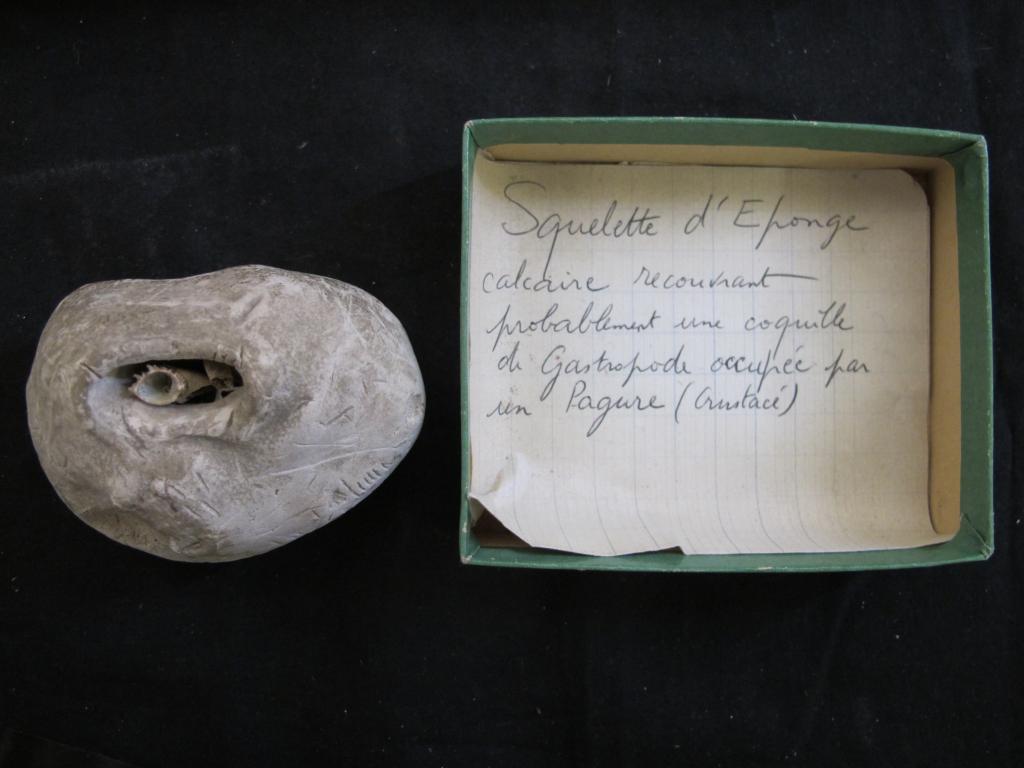 Squelette d'Eponge
calcaire recouvrant
probablement une coquille
de Gastropode occupée par
un Pagure (Crustacé)